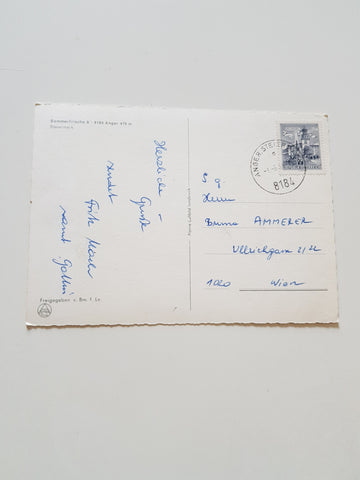 Sommerfrische A - 8184 Anger 479 m
Steiermark
Herzliche
Grüße
sendet
Fritz
samt Gattin
Freigegeben v. Bm. f. Lv.
ANGER, STEIERM
8184
S. g.
Herrn
Bruno AMMERER
Ullrichgasse 21/22
1020 Wien